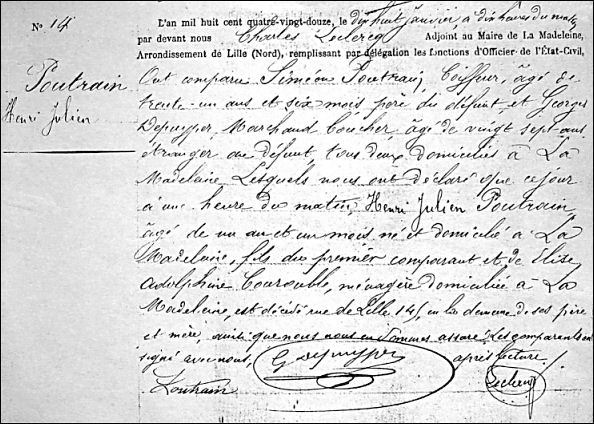 No 14
Poutrain
Henri Julien
L'an mil huit cent quatre-vingt-douze, le dix huit janvier à dix heures du matin
par devant nous Charles Leclercq Adjoint au Maire de La Madeleine,
Arrondissement de Lille (Nord), remplissant par délégation les fonctions d'Officier de l'État-Civil,
Ont comparu Siméon Poutrain, Coiffeur, âgé de
trente-un ans et six mois père du défunt, et Georges
Depuyper, Marchand boucher, âgé de vingt sept ans
étranger au défunt, tous deux domiciliés à La
Madeleine, Lesquels nous ont déclaré que ce jour
à une heure du matin, Henri Julien Poutrain
âgé de un an et un mois, né et domicilié à La
Madeleine, fils du premier comparant et de Elise
Adolphine ménagère domiciliée à La
Madeleine, est décédé rue de Lille 145, en la demeure de ses père
et mère, ainsi que nous nous en sommes assuré, Les comparants ont
signé avec nous, après lecture.
G Depuyper
Poutrain Leclercq